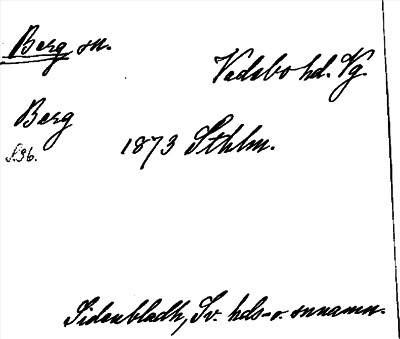 Berg sn.
Vedebo hd. Vg.
Berg
S. 36.
1873 Sthlm.
Sidenbladh, Sv. hds- o. snnamn.